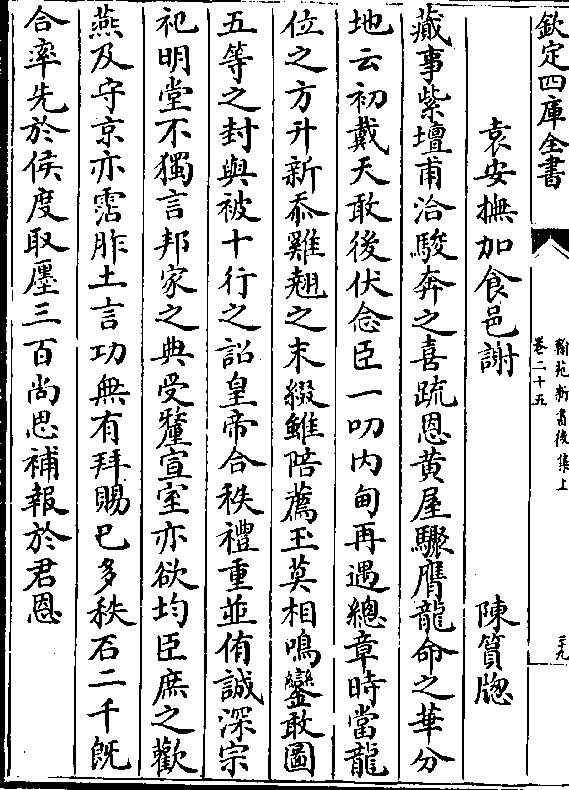 欽定四庫全書
翰苑新書後集上
卷二十五
二十九
袁安撫加食邑謝　陳篔牕
蕆事紫壇甫洽駿奔之喜疏恩黄屋驟膺龍命之華分
地云初戴天敢後伏念臣一叨内甸再遇總章時當龍
位之方升新忝雞翹之末綴雖陪薦玉莫相鳴鑾敢圖
五等之封與被十行之詔皇帝合秩禮重並侑誠深宗
祀明堂不獨言邦家之典受釐宣室亦欲均臣庶之歡
燕及守京亦霑胙土言功無有拜賜已多秩石二千既
合率先於侯度取廛三百尚思補報於君恩